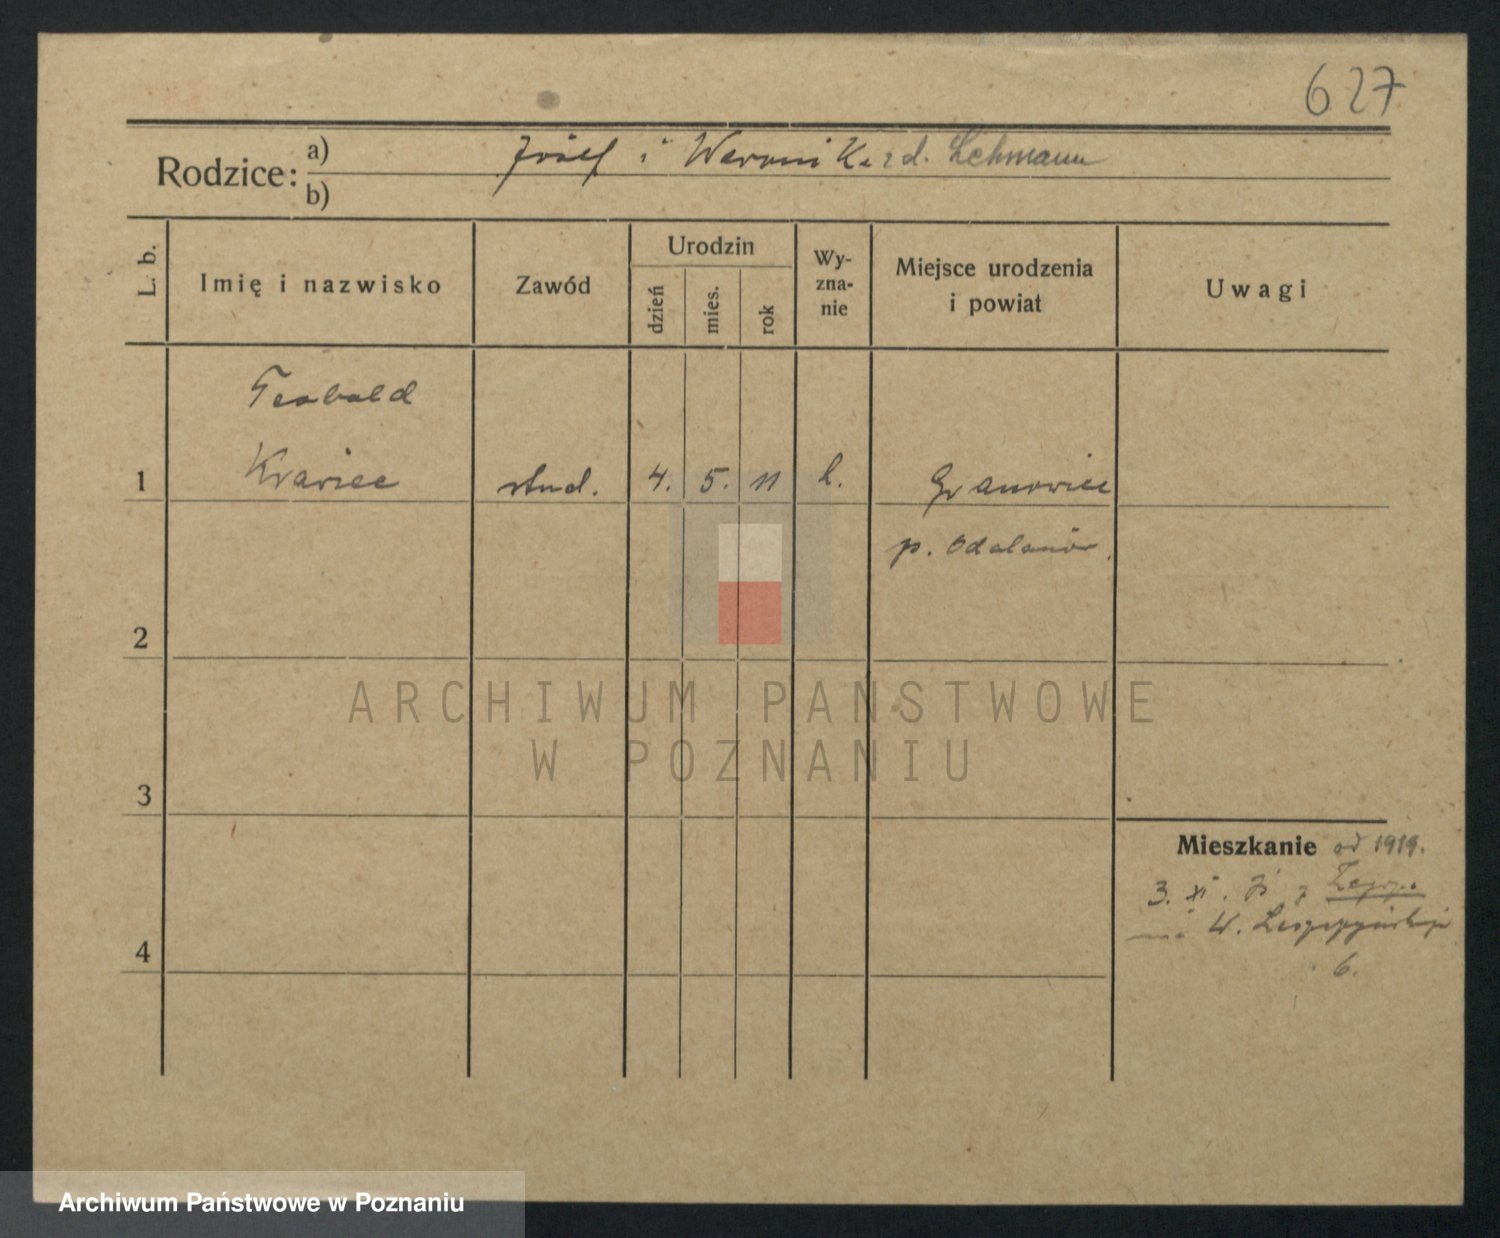 627
Rodzice: a) Józef i Weronika zd. Lehmann
b)
L. b.
Imię i nazwisko
Zawód
Urodzin
dzień
mies.
rok
Wy-
zna-
nie
Miejsce urodzenia
i powiat
Uwagi
Teobald
1 Krawiec stud. 4. 5. 11 k. Granowiec
p. Odolanów.
2
3
4
Mieszkanie od 1919.
3. XI.
W.
6.
ARCHIWUM PAŃSTWOWE
W POZNANIU
Archiwum Państwowe w Poznaniu